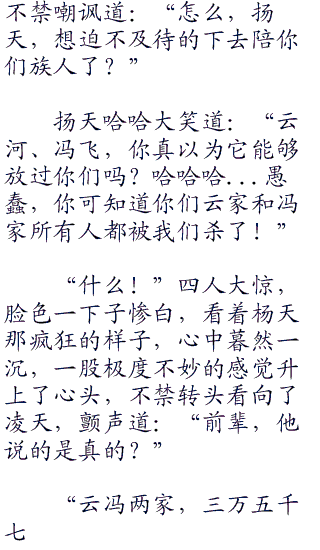 不禁嘲讽道：“怎么，扬
天，想迫不及待的下去陪你
们族人了？”
扬天哈哈大笑道：“云
河、冯飞，你真以为它能够
放过你们吗？哈哈哈...愚
蠢，你可知道你们云家和冯
家所有人都被我们杀了！”
“什么！”四人大惊，
脸色一下子惨白，看着杨天
那疯狂的样子，心中暮然一
沉，一股极度不妙的感觉升
上了心头，不禁转头看向了
凌天，颤声道：“前辈，他
说的是真的？”
“云冯两家，三万五千
七